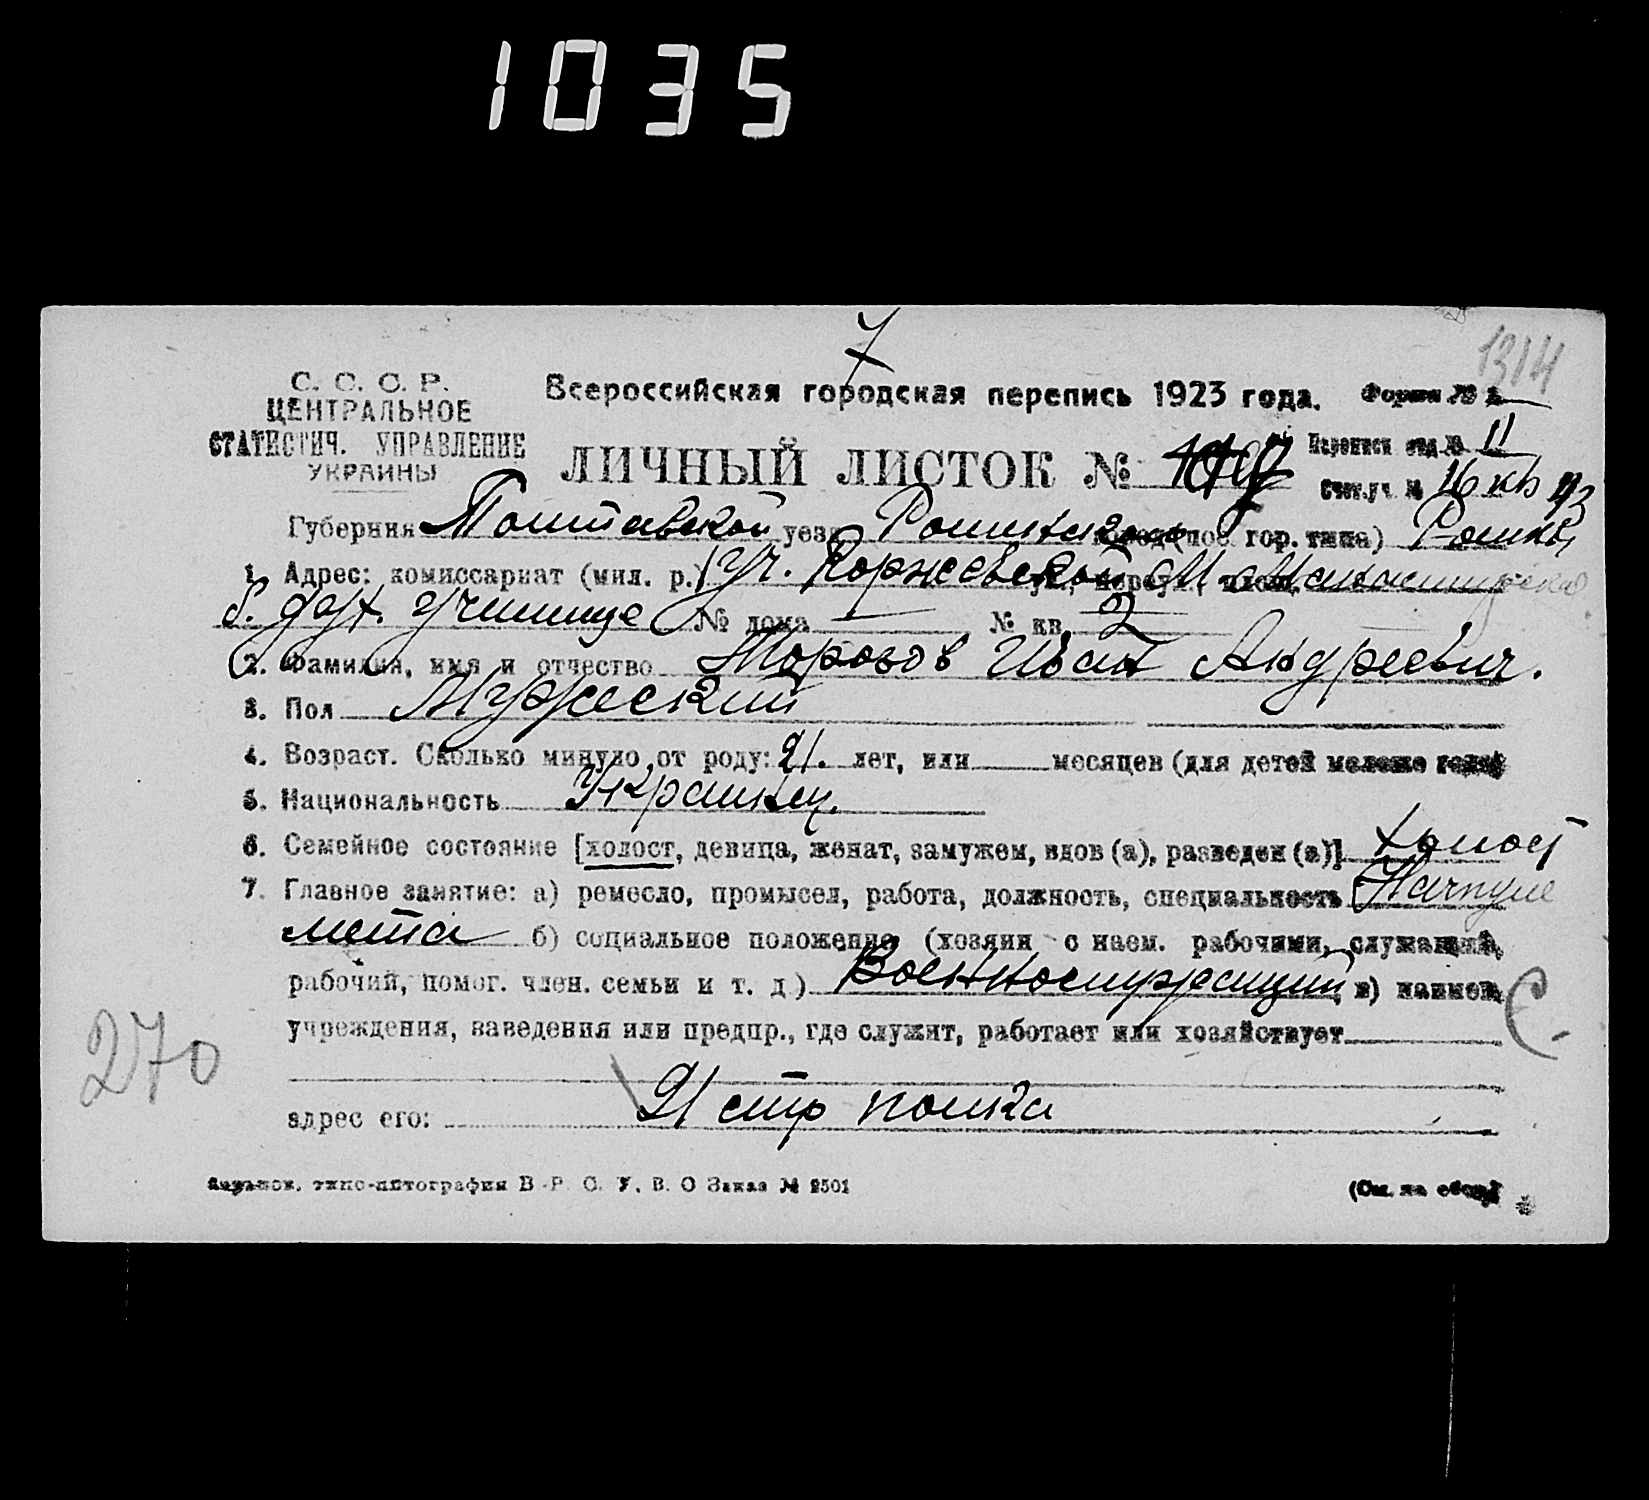 1035
7
1314
С. С. С. Р.
ЦЕНТРАЛЬНОЕ
СТАТИСТИЧ. УПРАВЛЕНИЕ
УКРАИНЫ
Всероссийская городская перепись 1923 года. Форма №
ЛИЧНЫЙ ЛИСТОК №
Переписн отд. № II
Счет.уч. № 16 кв 93
Губерния Полтавской уезд Роменского город (пос. гор. типа) Ромны
1. Адрес: комиссариат (мил. р.) Уч. Коржевской
б. дух. училище № дома — № кв. 2
2. Фамилия, имя и отчество Морозов Иван Андреевич.
3. Пол Мужеский
4. Возраст. Сколько минуло от роду: 21. лет, или месяцев (для детей моложе года)
5. Национальность Украинец.
6. Семейное состояние [холост, девица, женат, замужем, вдов (а), разведен (а)] холост
7. Главное занятие: а) ремесло, промысел, работа, должность, специальность Начпуле
мета б) социальное положение (хозяин с наем. рабочими, служащий,
рабочий, помог. член. семьи и т. д.) Военнослужащий в) наимен.
учреждения, заведения или предпр., где служит, работает или хозяйствует
С.
270
адрес его: 21 стр полка
типо-литография В.Р.С.У.В.О Заказ № 2501
(См. на обор.)